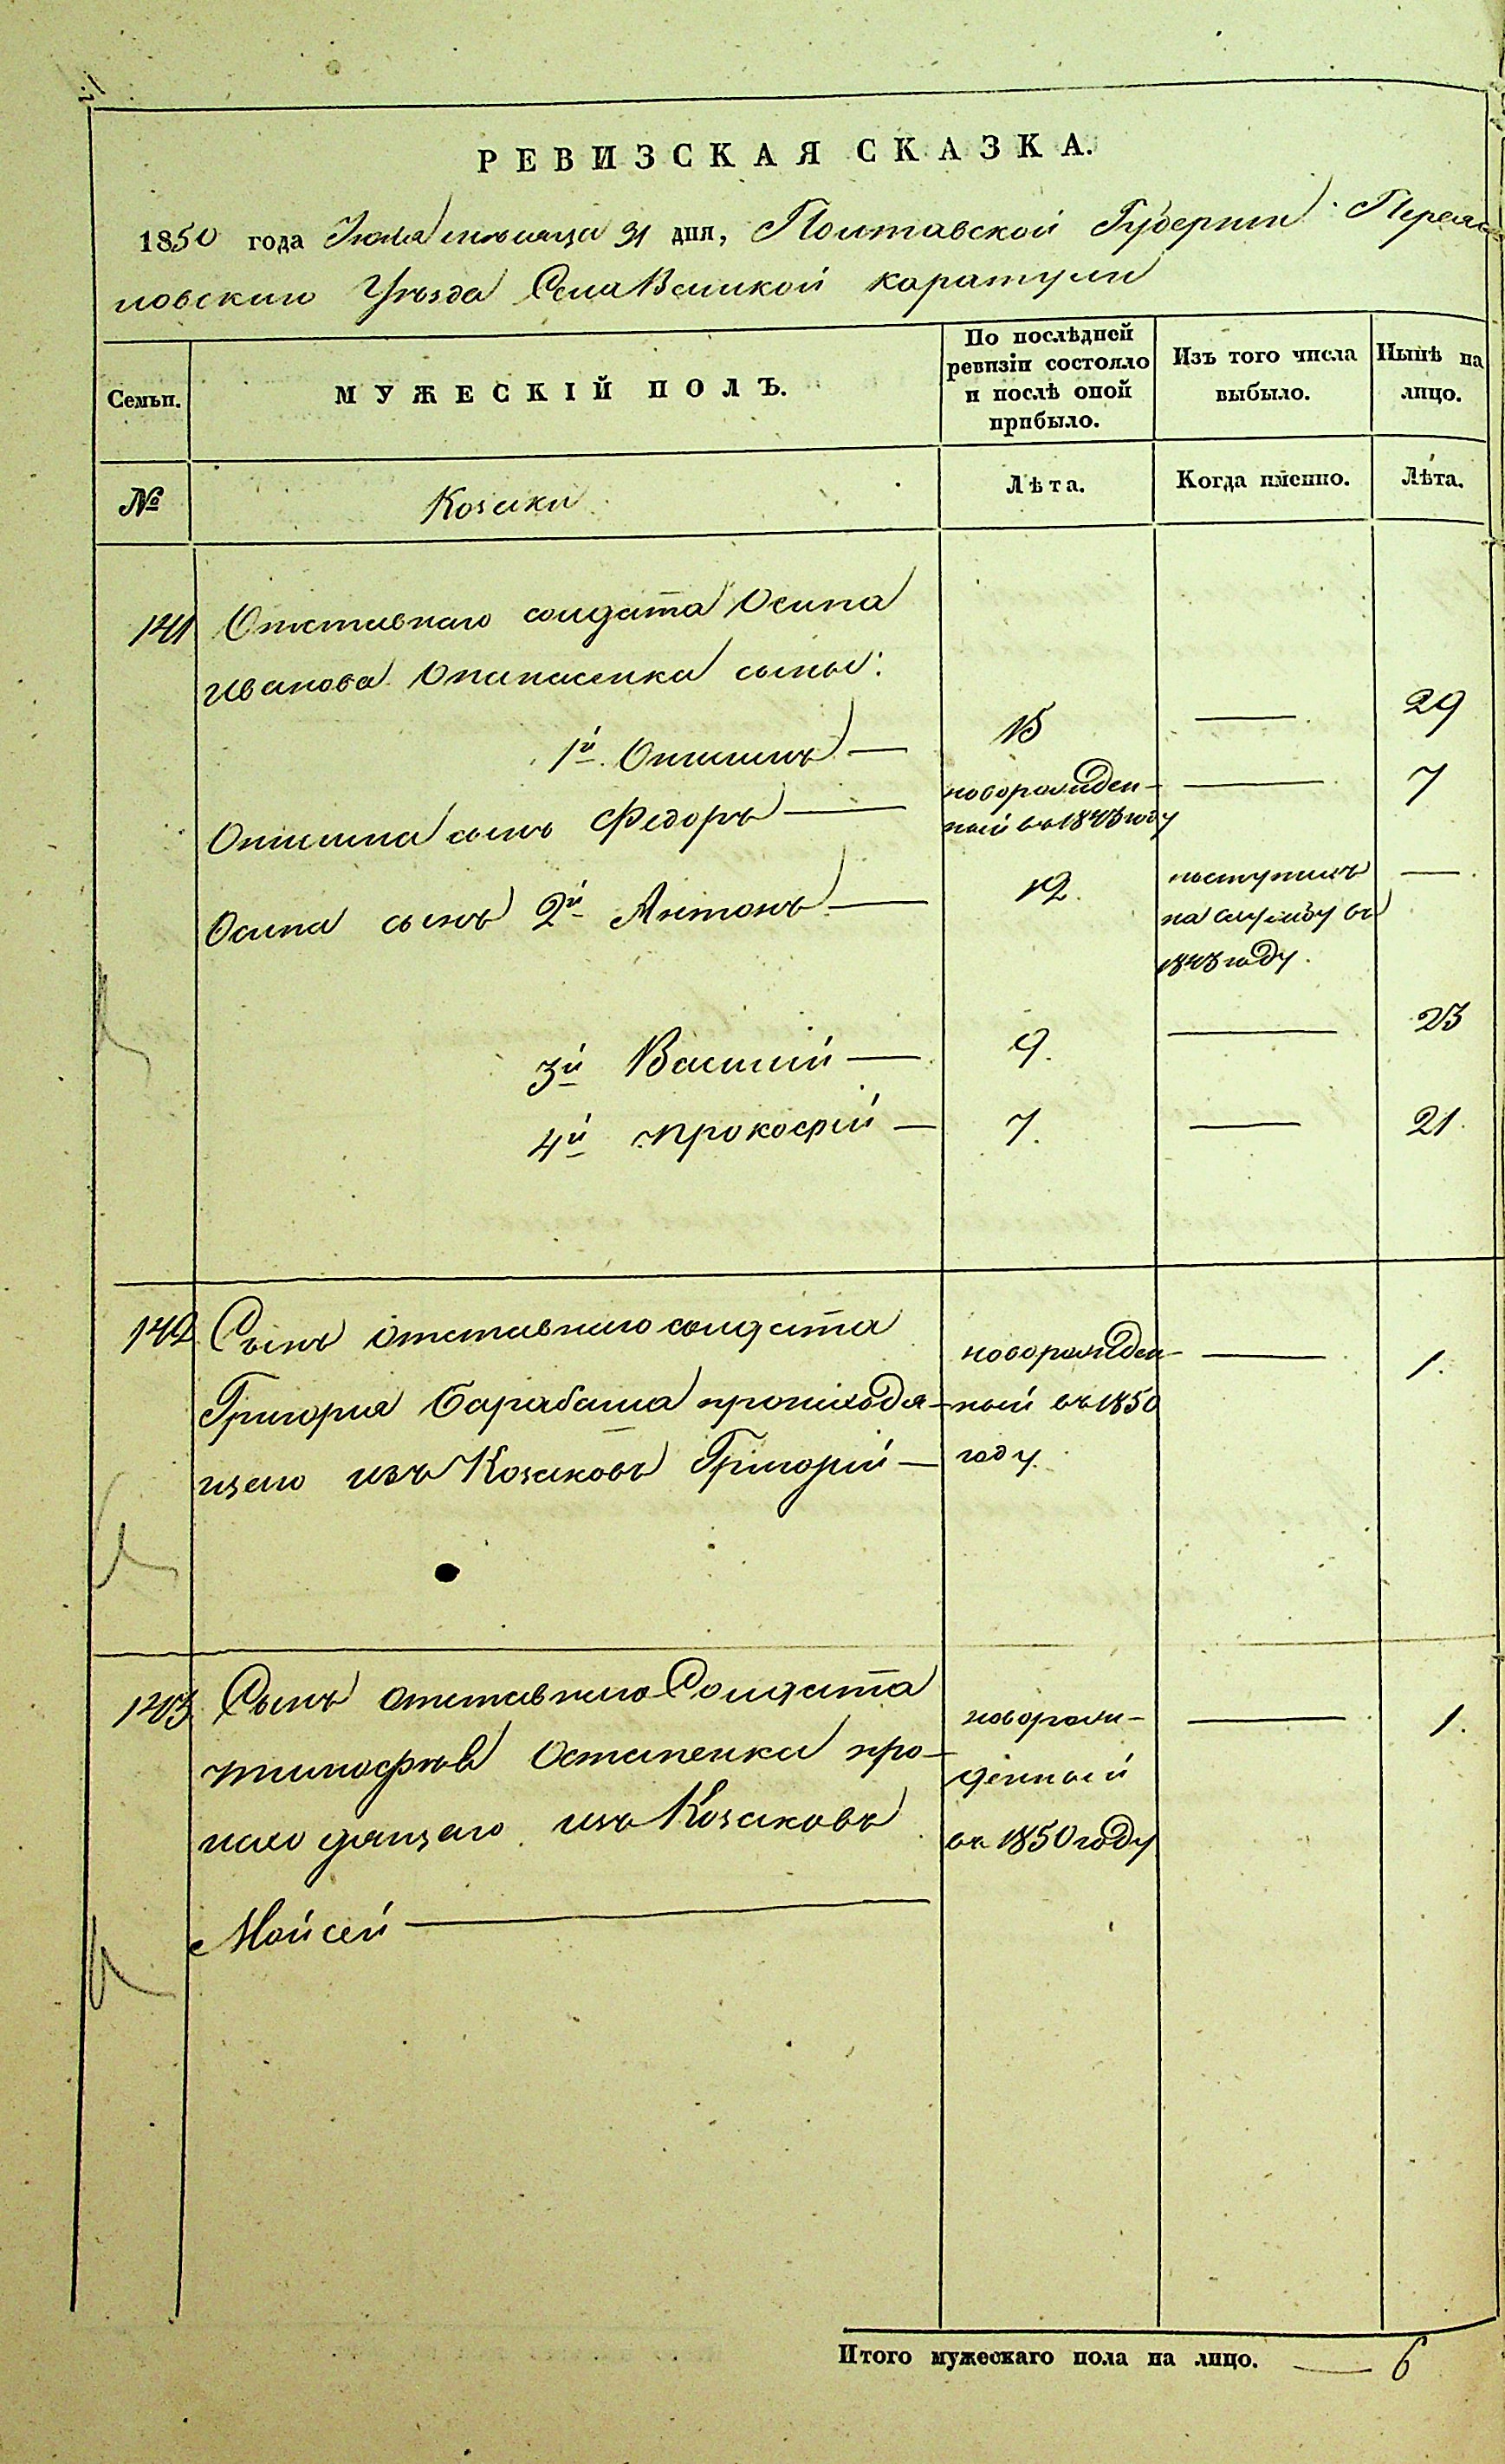 РЕВИЗСКАЯ СКАЗКА.
1850 года Июля мѣсяца 31 дня, Полтавской Губерніи Переяс
ловскаго Уѣзда Села Великой каратули
Семьи.
МУЖЕСКІЙ ПОЛЪ.
По послѣдней
ревизіи состояло
и послѣ оной
прибыло.
Изъ того числа
выбыло.
Нынѣ на
лицо.
№
Козаки
Лѣта.
Когда именно.
Лѣта.
141 Отставнаго солдата Осипа
Иванова Опанасенка сыны:
1й. — 15 — 29
сынъ Федоръ — новорожден- — 7
ный въ 1843 году
Осипа сынъ 2й Антонъ — 12. поступилъ —
на службу въ
1843 году.
3й Василій — 9. — 23
4й Прокофій — 7. — 21.
142 Сынъ отставнаго солдата
Григорія Барабаша происходя- новорожден- — 1.
щаго изъ Козаковъ Григорій — ный въ 1850
году.
143 Сынъ отставнаго Солдата
Тимофѣя Остапенка про- новорож- — 1.
исходящаго изъ Козаковъ денный
Мойсей — въ 1850 году
Итого мужескаго пола на лицо. — 6